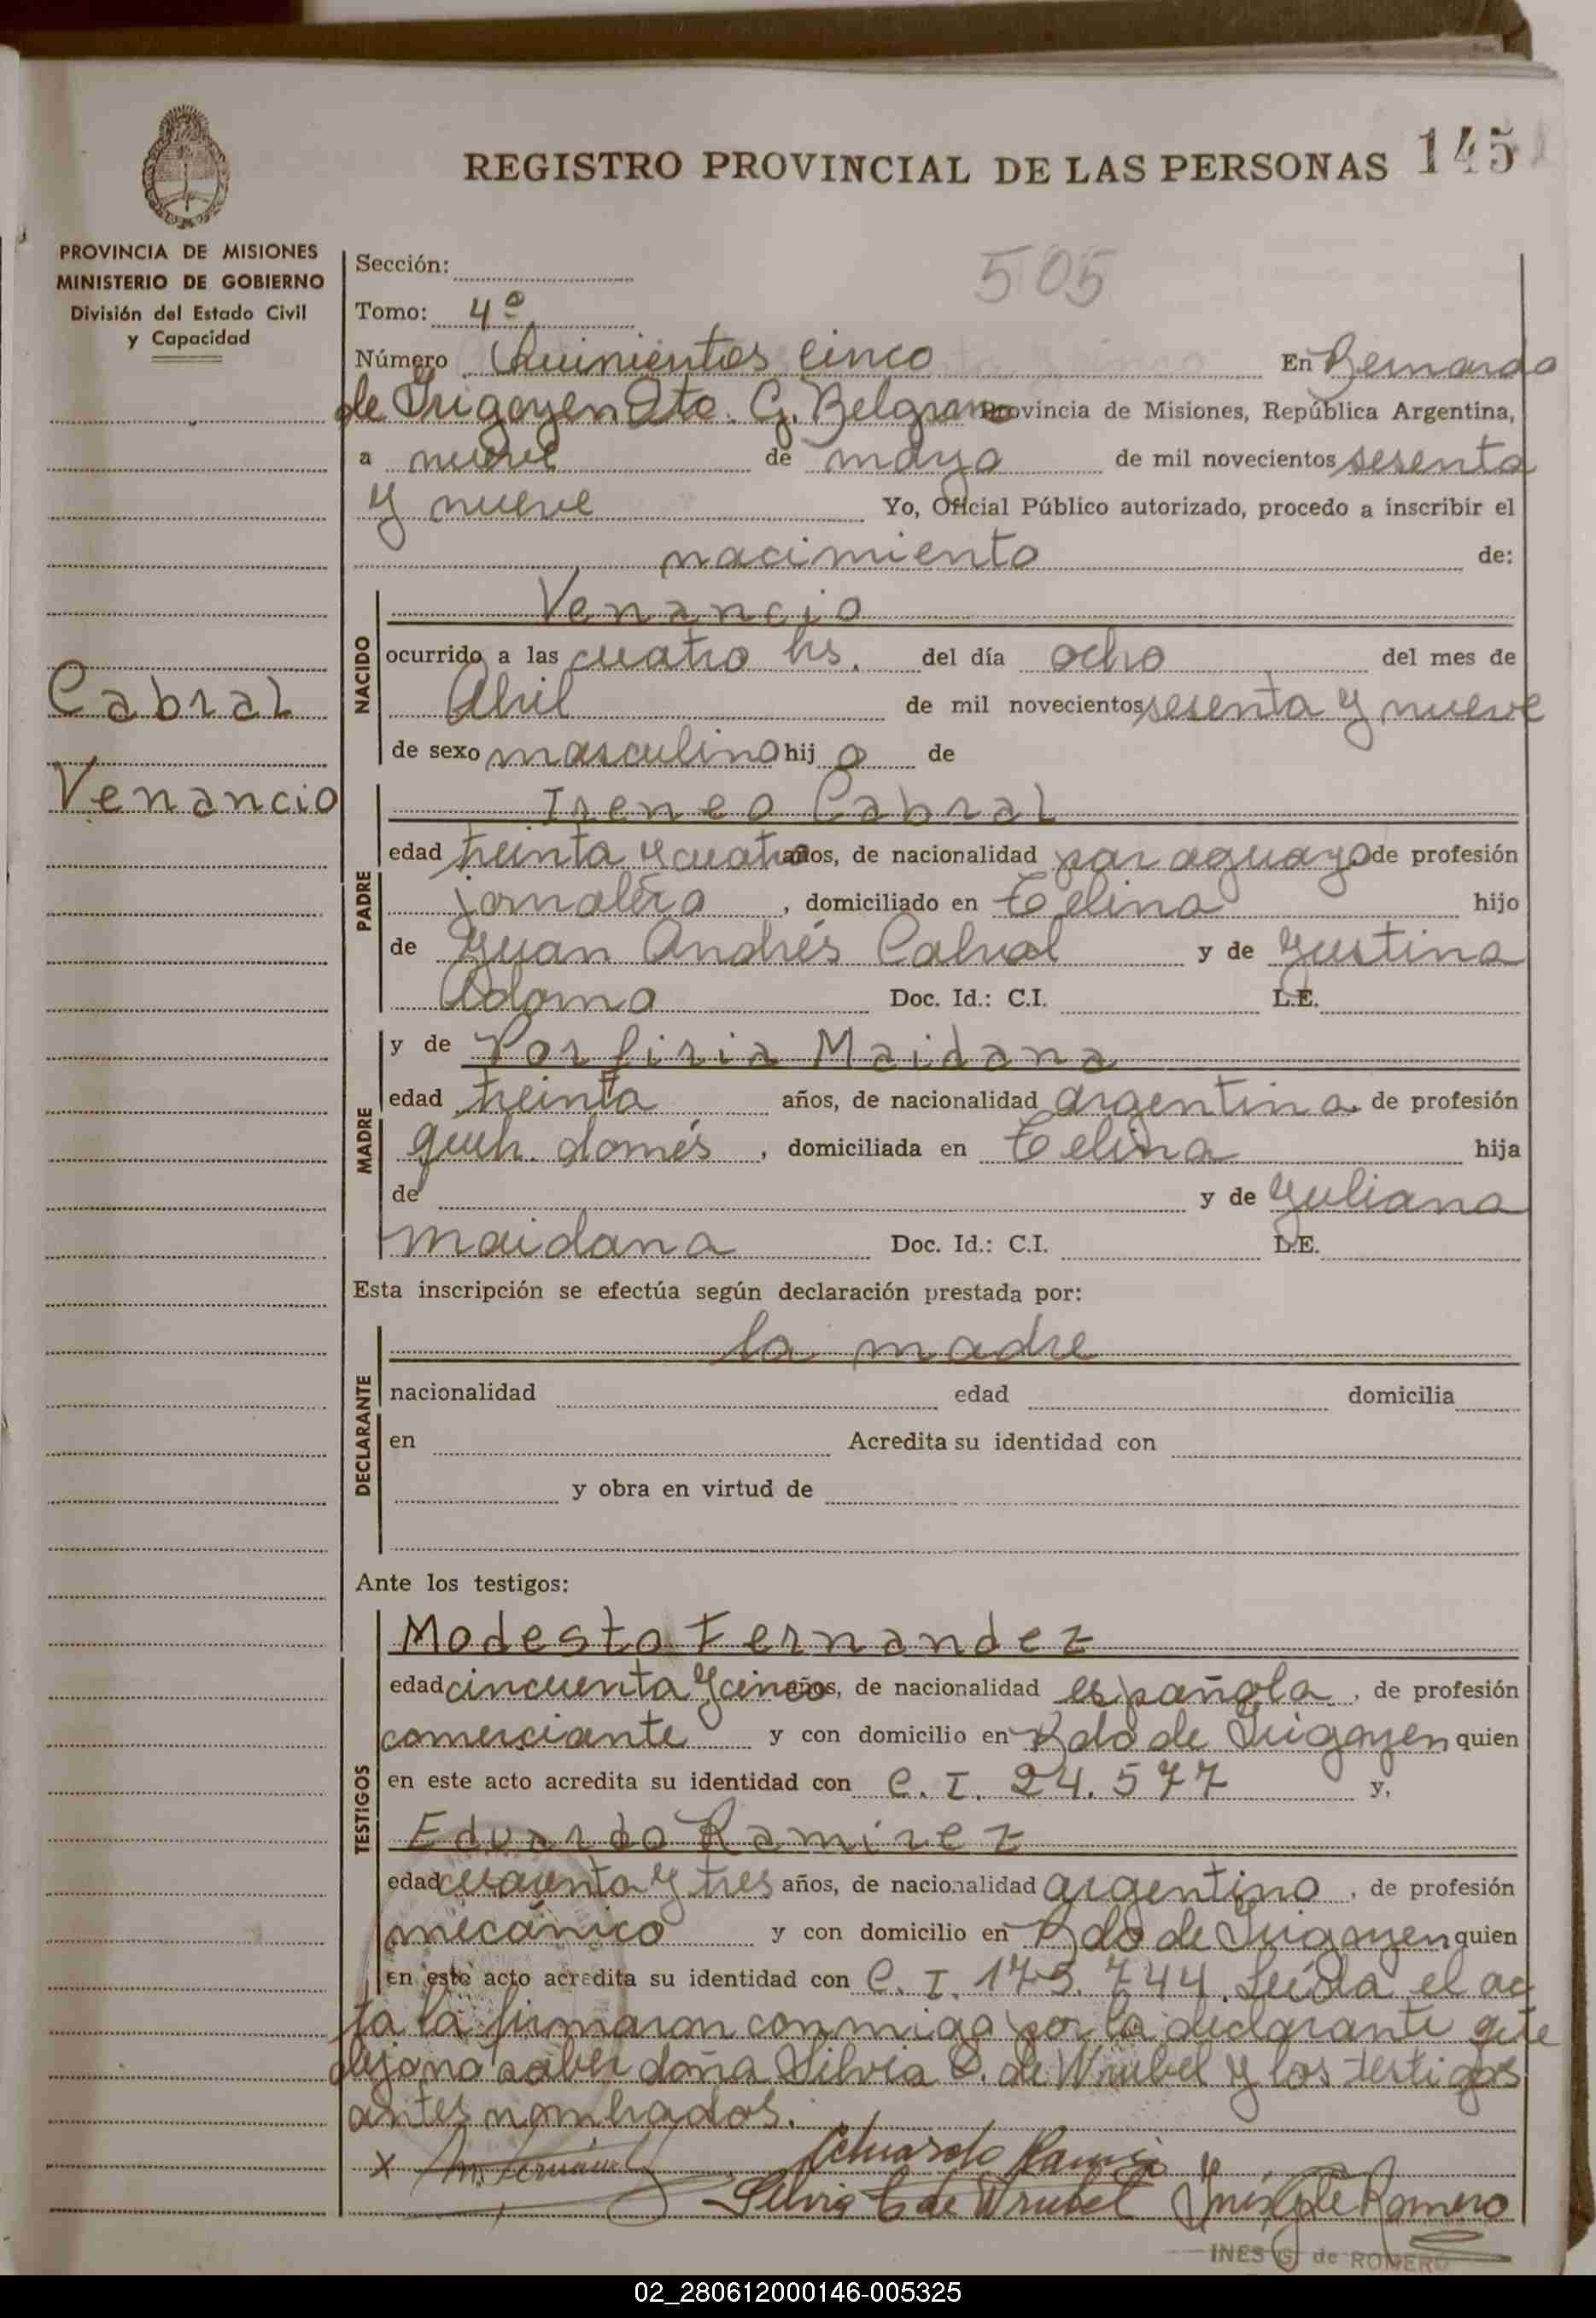 REGISTRO PROVINCIAL DE LAS PERSONAS 145
PROVINCIA DE MISIONES
MINISTERIO DE GOBIERNO
División del Estado Civil
y Capacidad
505
Sección:
Tomo: 4º
Número Quinientos cinco En Bernardo
de Irigoyen Dto. G. Belgrano Provincia de Misiones, República Argentina,
a nueve de mayo de mil novecientos sesenta
y nueve Yo, Oficial Público autorizado, procedo a inscribir el
nacimiento de:
NACIDO
Venancio
ocurrido a las cuatro hs. del día ocho del mes de
Abril de mil novecientos sesenta y nueve
de sexo masculino hijo de
Cabral
Venancio
PADRE
Ireneo Cabral
edad treinta y cuatro años, de nacionalidad paraguayo de profesión
jornalero, domiciliado en Celina hijo
de Juan Andrés Cabral y de Justina
Adorno Doc. Id.: C.I. L.E.
MADRE
y de Porfiria Maidana
edad treinta años, de nacionalidad argentina, de profesión
queh. domés, domiciliada en Celina hija
de y de Juliana
Maidana Doc. Id.: C.I. L.E.
Esta inscripción se efectúa según declaración prestada por:
DECLARANTE
la madre
nacionalidad edad domicilia
en Acredita su identidad con
y obra en virtud de
Ante los testigos:
TESTIGOS
Modesto Fernandez
edad cincuenta y cinco años, de nacionalidad española, de profesión
comerciante y con domicilio en Bdo de Irigoyen quien
en este acto acredita su identidad con C. I. 24.577 y,
Eduardo Ramirez
edad cuarenta y tres años, de nacionalidad argentino, de profesión
mecánico y con domicilio en Bdo de Irigoyen quien
en este acto acredita su identidad con C. I. 175.744. Leída el ac
ta la firmaron conmigo por la declarante que
dijo no saber doña Silvia C. de Wrubel y los testigos
antes nombrados.
x M. Fernandez Eduardo Ramirez
Silvia C de Wrubel Inés G de Romero
INES G. de ROMERO
02_280612000146-005325